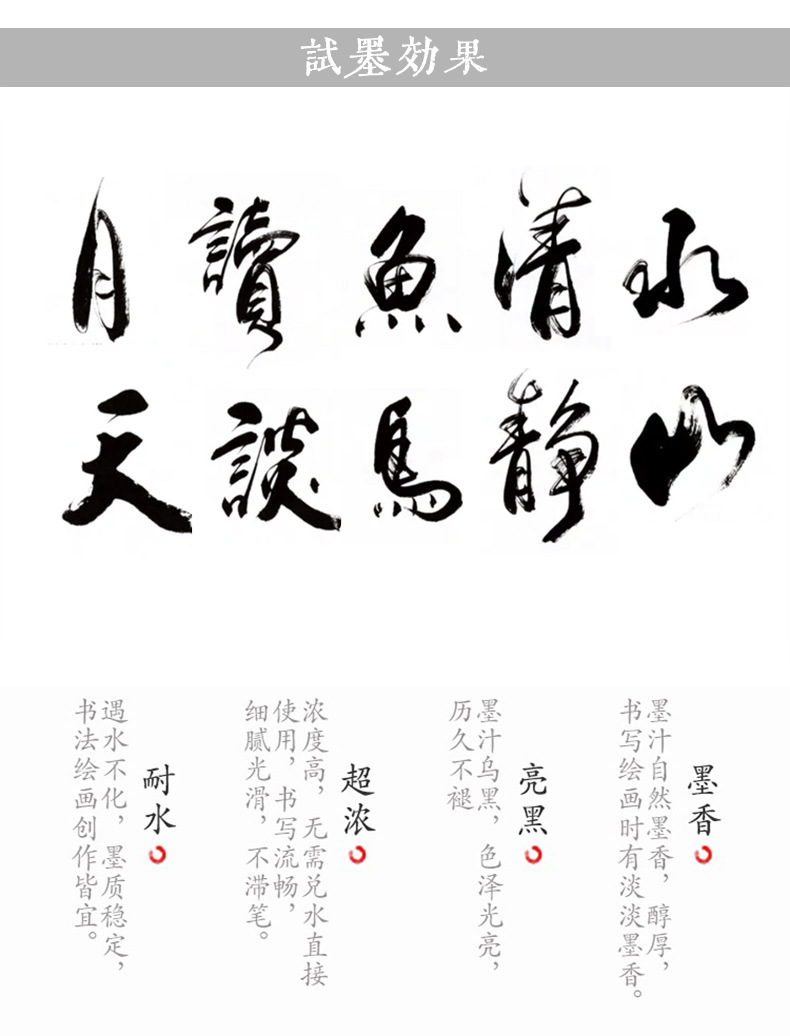 試墨効果
水山
清静
魚馬
讀談
月天
墨香
墨汁自然墨香，醇厚，
书写绘画时有淡淡墨香。
亮黑
墨汁乌黑，色泽光亮，
历久不褪
超浓
浓度高，无需兑水直接
使用，书写流畅，
细腻光滑，不滞笔。
耐水
遇水不化，墨质稳定，
书法绘画创作皆宜。